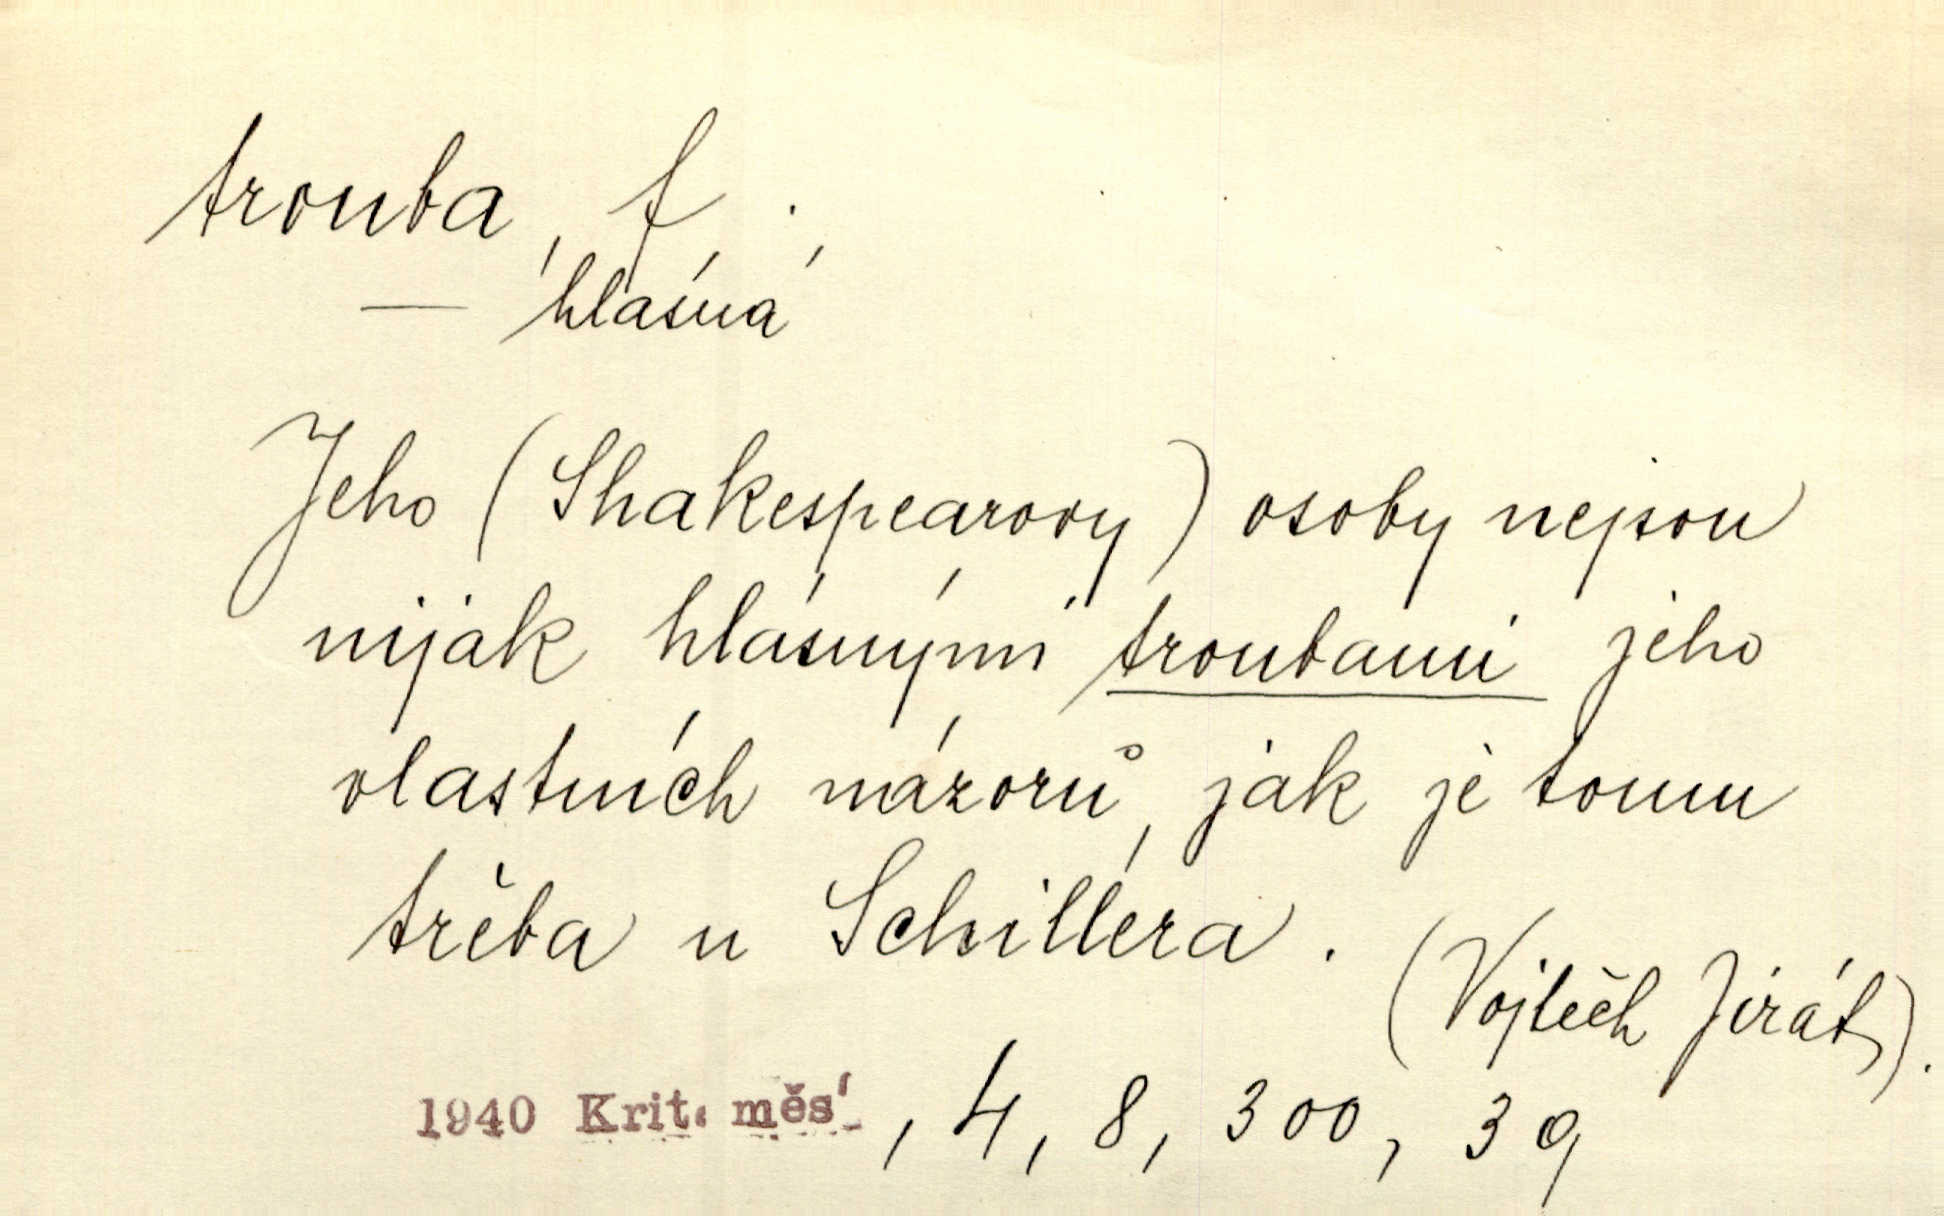 trouba, f.,
— hlásná
Jeho (Shakespearovy) osoby nejsou
nijak hlásnými troubami jeho
vlastních názorů, jak je tomu
třeba u Schillera.
(Vojtěch Jirát).
1940 Krit. měs., 4, 8, 300, 39